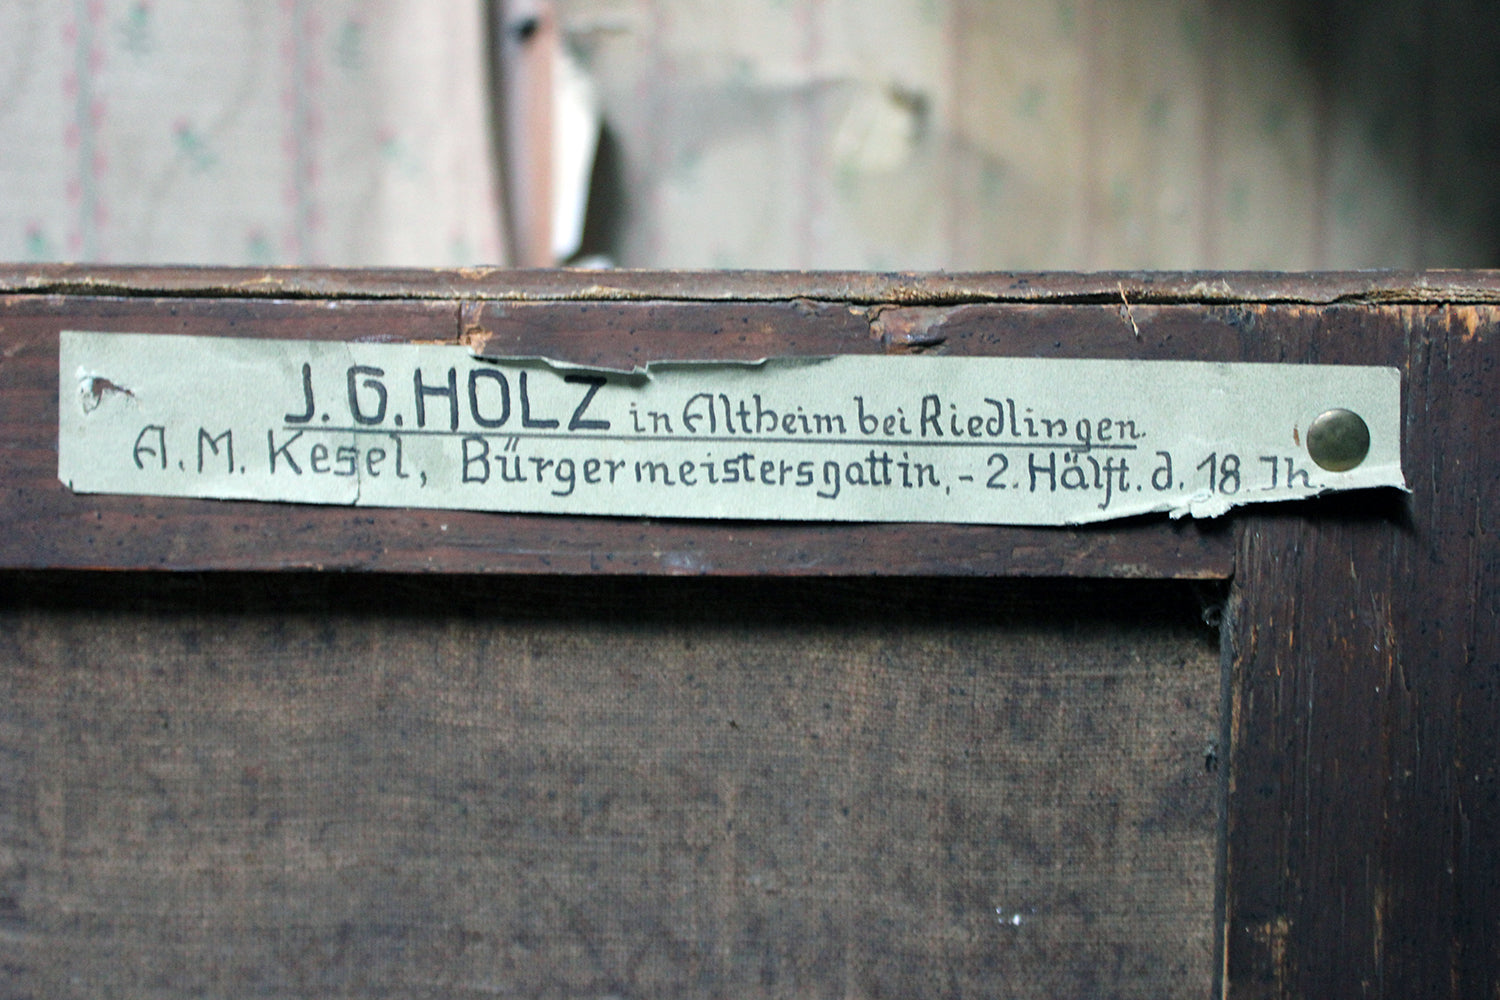 J. G. HOLZ in Altheim bei Riedlingen.
A. M. Kesel, Bürgermeistersgattin, - 2. Hälft. d. 18. Jh.